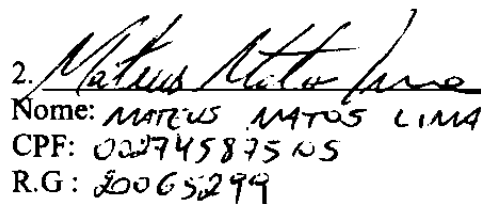 2. Mateus Matos Lima
Nome: MATEUS MATOS LIMA
CPF: 00274587505
R.G: 20065299